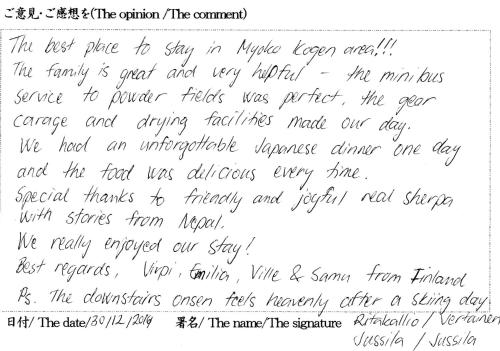 ご意見・ご感想を(The opinion /The comment)
The best place to stay in Myoko Kogen area!!!
The family is great and very helpful - the minibus
service to powder fields was perfect, the gear
garage and drying facilities made our day.
We had an unforgottable Japanese dinner one day
and the food was delicious every time.
Special thanks to friendly and joyful real sherpa
with stories from Nepal.
We really enjoyed our stay!
Best regards, Virpi, Emilia, Ville & Samu from Finland
Ps. The downstairs onsen feels heavenly after a skiing day.
日付/ The date/30/12/2019 署名/ The name/The signature Ritakallio / Vertainen
Jussila / Jussila